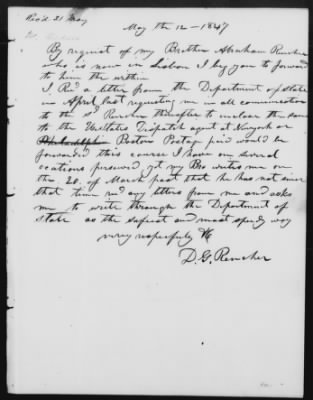 Rec'd 21 May
May the 12 - 1847
By request of my Brother Abraham Rencher
who is now in Lisbon I beg you to forward
to him the within
I Rd a letter from the Department of State
in April last requesting me in all communication
to the sd Rencher thereafter to enclose the same
to the U States Dispatch agent at Newyork or
Philadelphia Boston Postage paid would be
forwarded this course I have on several
ocations persued yet my Bro writes me on
the 20 of March past that he has not since
that time rcd any letters from me and asks
me to write through the Department of
state as the safest and most spedy way
very respectfully
D. G. Rencher